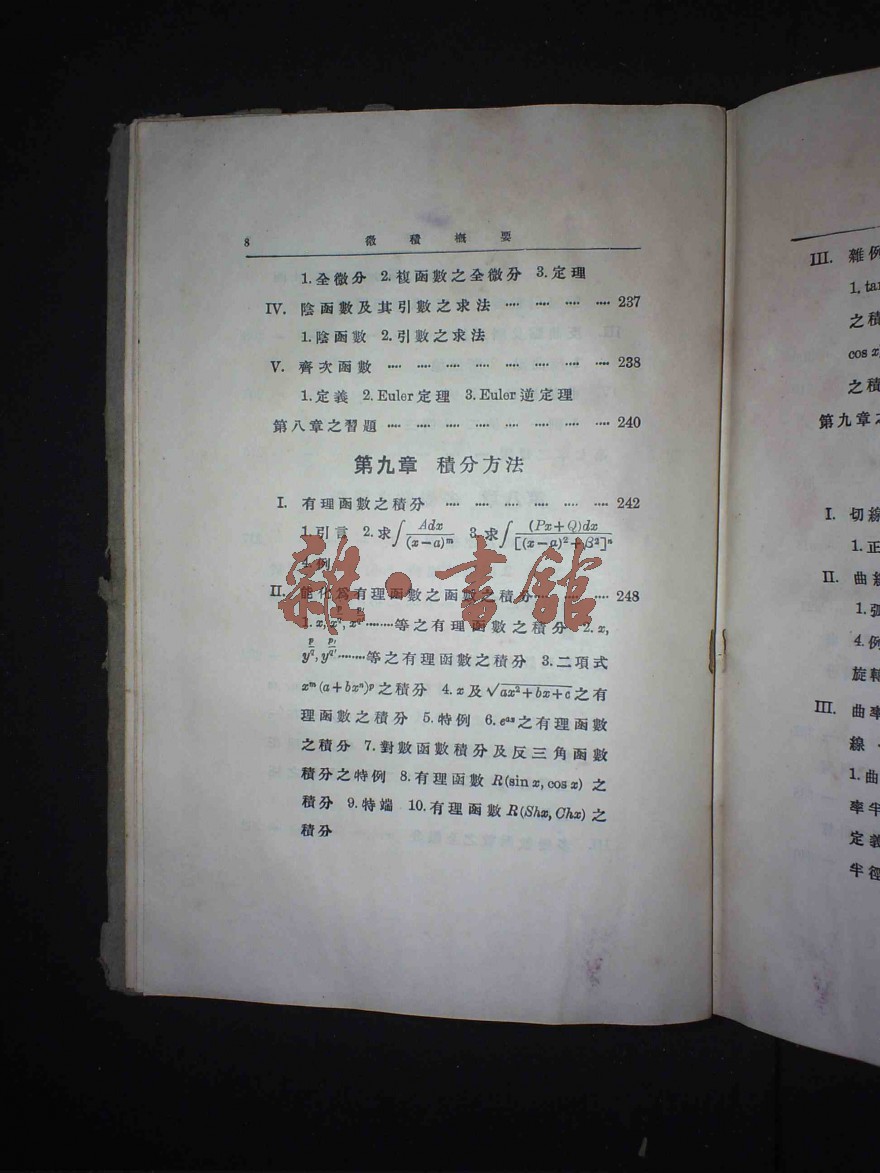 8 微積概要
1.全微分 2.複函數之全微分 3.定理
IV. 陰函數及其引數之求法 ···· ···· ···· ···· 237
1.陰函數 2.引數之求法
V. 齊次函數 ···· ···· ···· ···· ···· ···· ···· ···· 238
1.定義 2.Euler定理 3.Euler逆定理
第八章之習題 ···· ···· ···· ···· ···· ···· ···· ···· 240
第九章 積分方法
I. 有理函數之積分 ···· ···· ···· ···· ···· ···· 242
1.引言 2.求∫Adx/(x−a)^m 3.求∫(Px+Q)dx/[(x−a)²+β²]^n
4.例
II. 能化爲有理函數之函數之積分 ···· ···· ···· 248
1.x, x^(p/q), ········等之有理函數之積分 2.x,
y^(p/q), y^(p′/q′)········等之有理函數之積分 3.二項式
x^m(a+bx^n)^p之積分 4.x及√(ax²+bx+c)之有
理函數之積分 5.特例 6.e^(ax)之有理函數
之積分 7.對數函數積分及反三角函數
積分之特例 8.有理函數R(sin x, cos x)之
積分 9.特端 10.有理函數R(Shx, Chx)之
積分
雜·書館
III. 雜例
1.tan
之積
cos x
之積
第九章之
I. 切線
1.正
II. 曲線
1.弧
4.例
旋轉
III. 曲率
線
1.曲
率半
定義
半徑